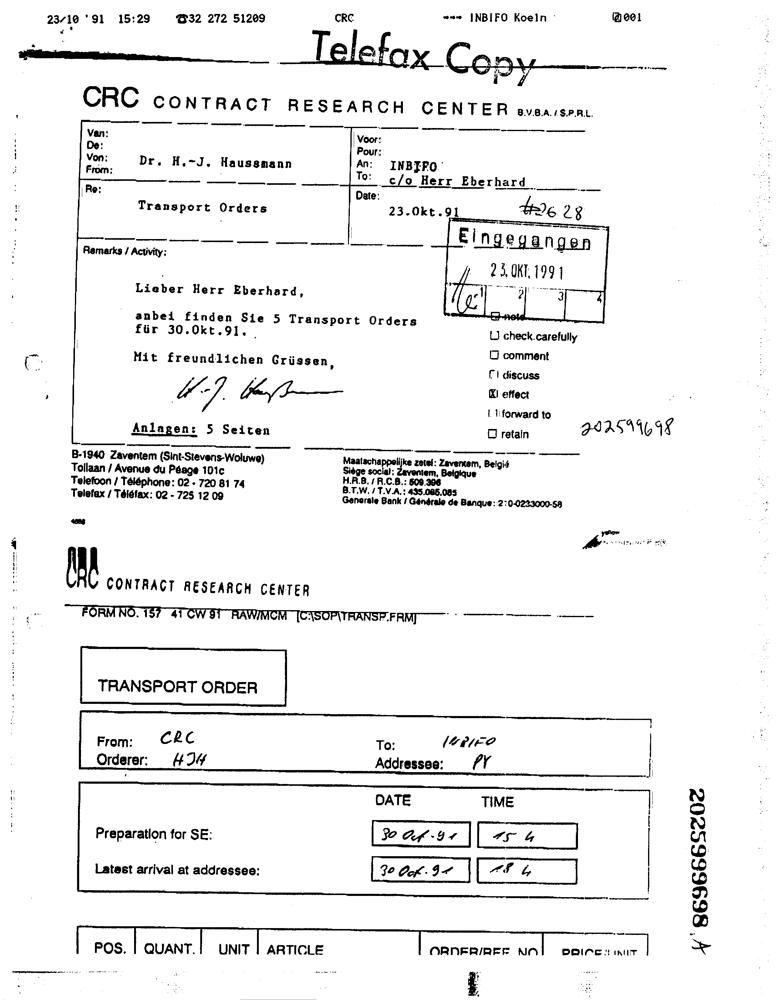 23/10 '91 15:29 ☎32 272 51209 CRC →→→ INBIFO Koeln 001
Telefax Copy
CRC CONTRACT RESEARCH CENTER B.V.B.A. / S.P.R.L.
Van:
De:
Von: Dr. H.-J. Haussmann
From:
Voor:
Pour:
An: INBIFO
To: c/o Herr Eberhard
Re:
Transport Orders
Date:
23.Okt.91
#2628
Eingegangen
23. OKT. 1991
1 2 3 4
Remarks / Activity:
Lieber Herr Eberhard,
anbei finden Sie 5 Transport Orders
für 30.Okt.91.
Mit freundlichen Grüssen,
Anlagen: 5 Seiten
☐ note
☐ check carefully
☐ comment
☐ discuss
☒ effect
☐ forward to
☐ retain
202599698
B-1940 Zaventem (Sint-Stevens-Woluwe)
Tollaan / Avenue du Péage 101c
Telefoon / Téléphone: 02 - 720 81 74
Telefax / Téléfax: 02 - 725 12 09
Maatschappelijke zetel: Zaventem, België
Siège social: Zaventem, Belgique
H.R.B. / R.C.B.: 509.396
B.T.W. / T.V.A.: 435.065.085
Generale Bank / Générale de Banque: 210-0233000-58
CRC CONTRACT RESEARCH CENTER
FORM NO. 157 41 CW 91 RAW/MCM [C:\SOP\TRANSP.FRM]
TRANSPORT ORDER
From: CRC
Orderer: HJH
To: INBIFO
Addressee: PY
DATE TIME
Preparation for SE: 30 Oct. 91 15 h
Latest arrival at addressee: 30 Oct. 91 18 h
POS. QUANT. UNIT ARTICLE ORDER/REF. NO PRICE/UNIT
2025999698 A